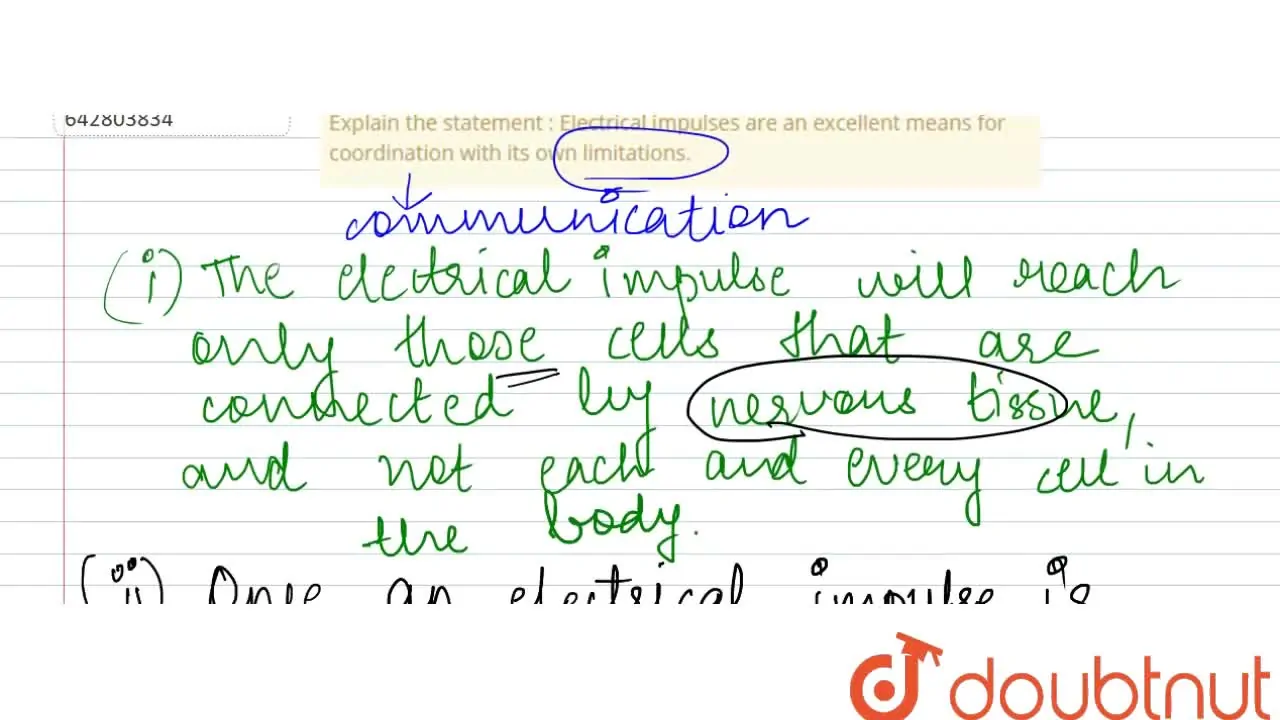 642803834
Explain the statement : Electrical impulses are an excellent means for
coordination with its own limitations.
communication
(i) The electrical impulse will reach
only those cells that are
connected by nervous tissue,
and not each and every cell in
the body.
(ii) Once an electrical impulse is
doubtnut